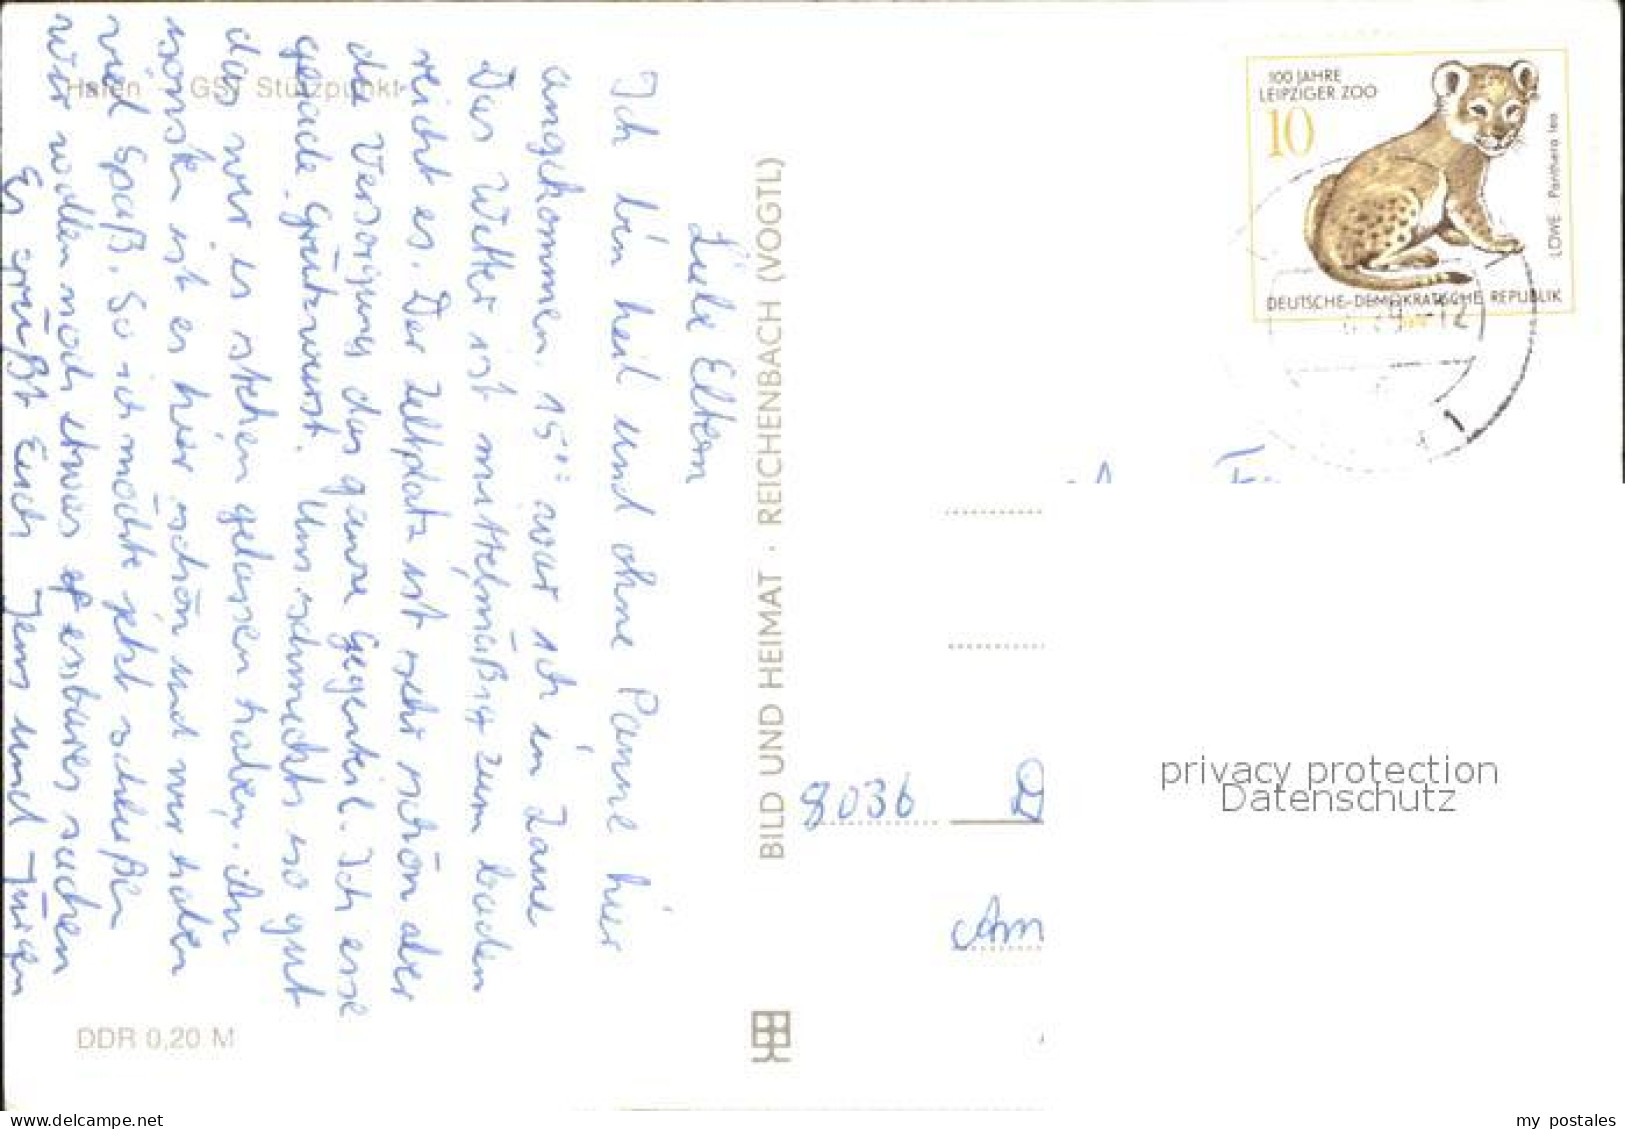 Hafen - GST Stützpunkt
Liebe Eltern
Ich bin heil und ohne Panne hier
angekommen. 15°° war ich in
Das Wetter ist mittelmäßig zum baden
reicht es. Der Zeltplatz ist sehr schön aber
die Versorgung das ganze Gegenteil. Ich esse
gerade Grützwurst. Uns schmeckts so gut
das wir es stehen gelassen haben. An
sonsten ist es hier schön und wir haben
viel Spaß. So ich möchte jetzt schließen
wir wollen noch etwas essbares suchen
Es grüßt Euch Jens und Jürgen
DDR 0,20 M
BILD UND HEIMAT · REICHENBACH (VOGTL)
100 JAHRE
LEIPZIGER ZOO
10
LÖWE · Panthera leo
DEUTSCHE DEMOKRATISCHE REPUBLIK
1
8036 D
Am
privacy protection
Datenschutz
www.delcampe.net
my_postales